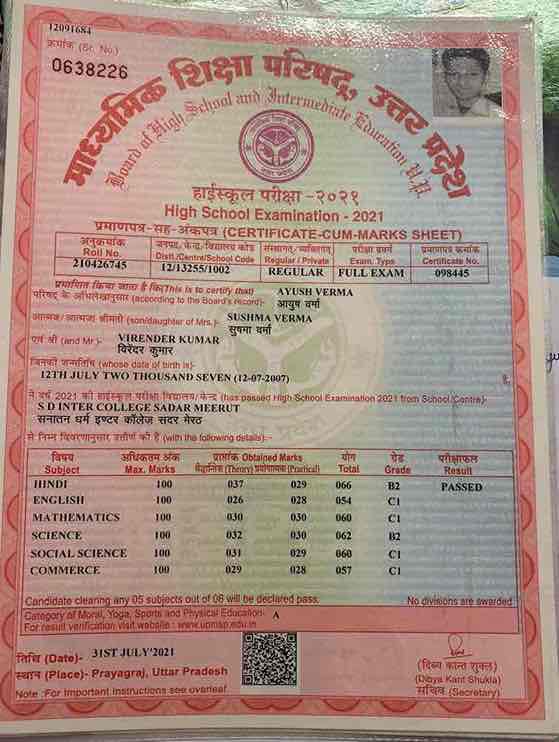 12091684
क्रमांक (Sr. No.)
0638226
माध्यमिक शिक्षा परिषद्, उत्तर प्रदेश
Board of High School and Intermediate Education U.P.
हाईस्कूल परीक्षा - २०२१
High School Examination - 2021
प्रमाणपत्र-सह-अंकपत्र (CERTIFICATE-CUM-MARKS SHEET)
अनुक्रमांक जनपद/केन्द्र/विद्यालय कोड संस्थागत/व्यक्तिगत परीक्षा प्रवर्ग प्रमाणपत्र क्रमांक
Roll No. Distt./Centre/School Code Regular / Private Exam. Type Certificate No.
210426745 12/13255/1002 REGULAR FULL EXAM 098445
प्रमाणित किया जाता है कि(This is to certify that) AYUSH VERMA
परिषद् के अभिलेखानुसार (according to the Board's record)- आयुष वर्मा
आत्मज/आत्मजा श्रीमती (son/daughter of Mrs.)- SUSHMA VERMA
सुषमा वर्मा
एवं श्री (and Mr.)- VIRENDER KUMAR
विरेंदर कुमार
जिनकी जन्मतिथि (whose date of birth is)-
12TH JULY TWO THOUSAND SEVEN (12-07-2007) है,
ने वर्ष 2021 की हाईस्कूल परीक्षा विद्यालय/केन्द्र (has passed High School Examination 2021 from School/Centre)-
S D INTER COLLEGE SADAR MEERUT
सनातन धर्म इण्टर कॉलेज सदर मेरठ
से निम्न विवरणानुसार उत्तीर्ण की है (with the following details):-
विषय अधिकतम अंक प्राप्तांक Obtained Marks योग ग्रेड परीक्षाफल
Subject Max. Marks सैद्धान्तिक (Theory) प्रयोगात्मक (Practical) Total Grade Result
HINDI 100 037 029 066 B2 PASSED
ENGLISH 100 026 028 054 C1
MATHEMATICS 100 030 030 060 C1
SCIENCE 100 032 030 062 B2
SOCIAL SCIENCE 100 031 029 060 C1
COMMERCE 100 029 028 057 C1
Candidate clearing any 05 subjects out of 06 will be declared pass. No divisions are awarded
Category of Moral, Yoga, Sports and Physical Education- A
For result verification visit website : www.upmsp.edu.in
तिथि (Date)- 31ST JULY'2021
स्थान (Place)- Prayagraj, Uttar Pradesh
Note :For Important Instructions see overleaf
(दिव्य कान्त शुक्ल)
(Dibya Kant Shukla)
सचिव (Secretary)